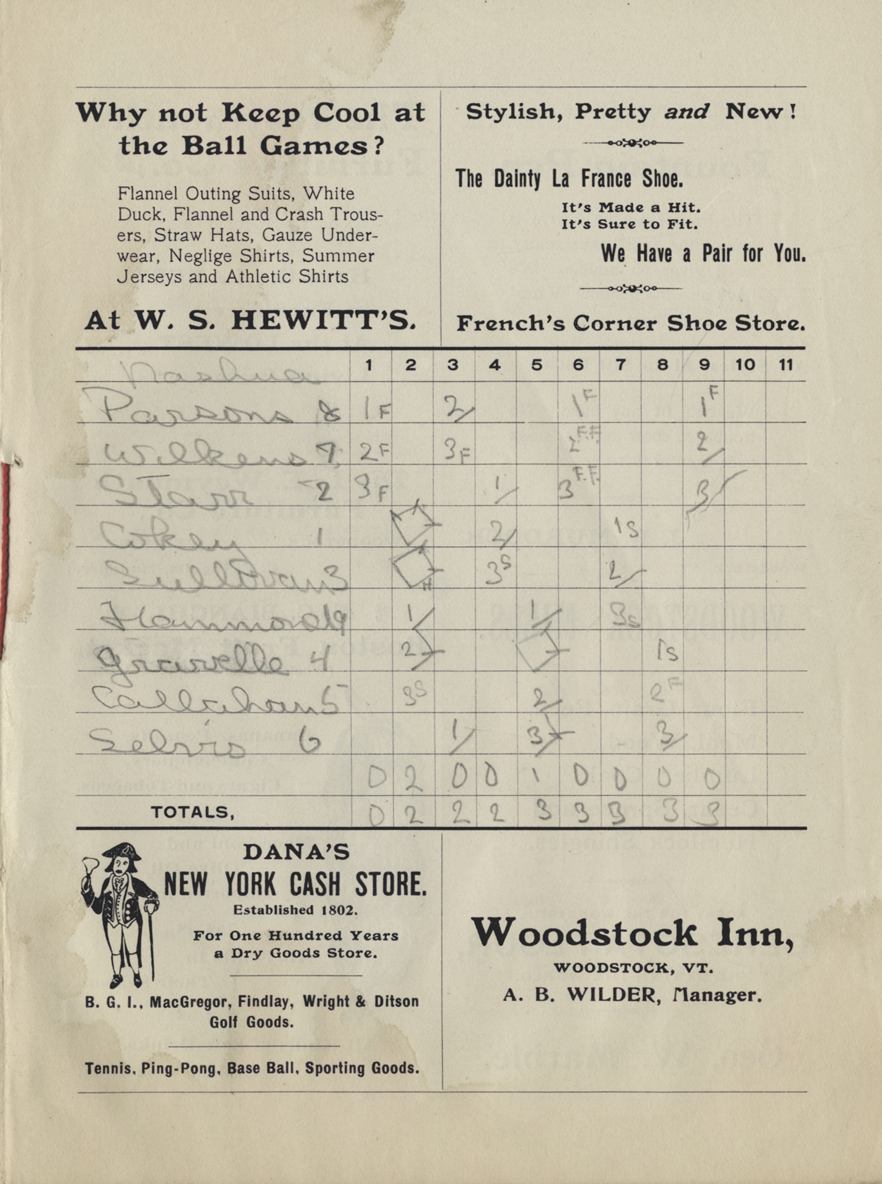 Why not Keep Cool at
the Ball Games?
Flannel Outing Suits, White
Duck, Flannel and Crash Trous-
ers, Straw Hats, Gauze Under-
wear, Neglige Shirts, Summer
Jerseys and Athletic Shirts
At W. S. HEWITT'S.
Stylish, Pretty and New!
The Dainty La France Shoe.
It's Made a Hit.
It's Sure to Fit.
We Have a Pair for You.
French's Corner Shoe Store.
Nashua 1 2 3 4 5 6 7 8 9 10 11
Parsons 8 1F 2 1F 1F
Wilkens 7 2F 3F 2FF 2
Starr 2 3F 1 3FF 3
Cokey 1 2 1S
Sullivan 3 3S 2
Hammond 9 1 1 3S
Gravelle 4 2 1S
Callahan 5 3S 2 2F
6 1 3 3
0 2 0 0 1 0 0 0 0
TOTALS, 0 2 2 2 3 3 3 3 3
DANA'S
NEW YORK CASH STORE.
Established 1802.
For One Hundred Years
a Dry Goods Store.
B. G. I., MacGregor, Findlay, Wright & Ditson
Golf Goods.
Tennis, Ping-Pong, Base Ball, Sporting Goods.
Woodstock Inn,
WOODSTOCK, VT.
A. B. WILDER, Manager.